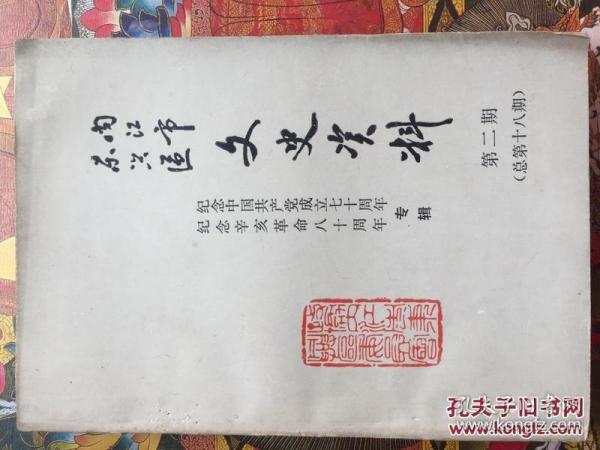 内江市
东兴区
文史资料
第二期
(总第十八期)
纪念中国共产党成立七十周年
纪念辛亥革命八十周年
专辑
孔夫子旧书网